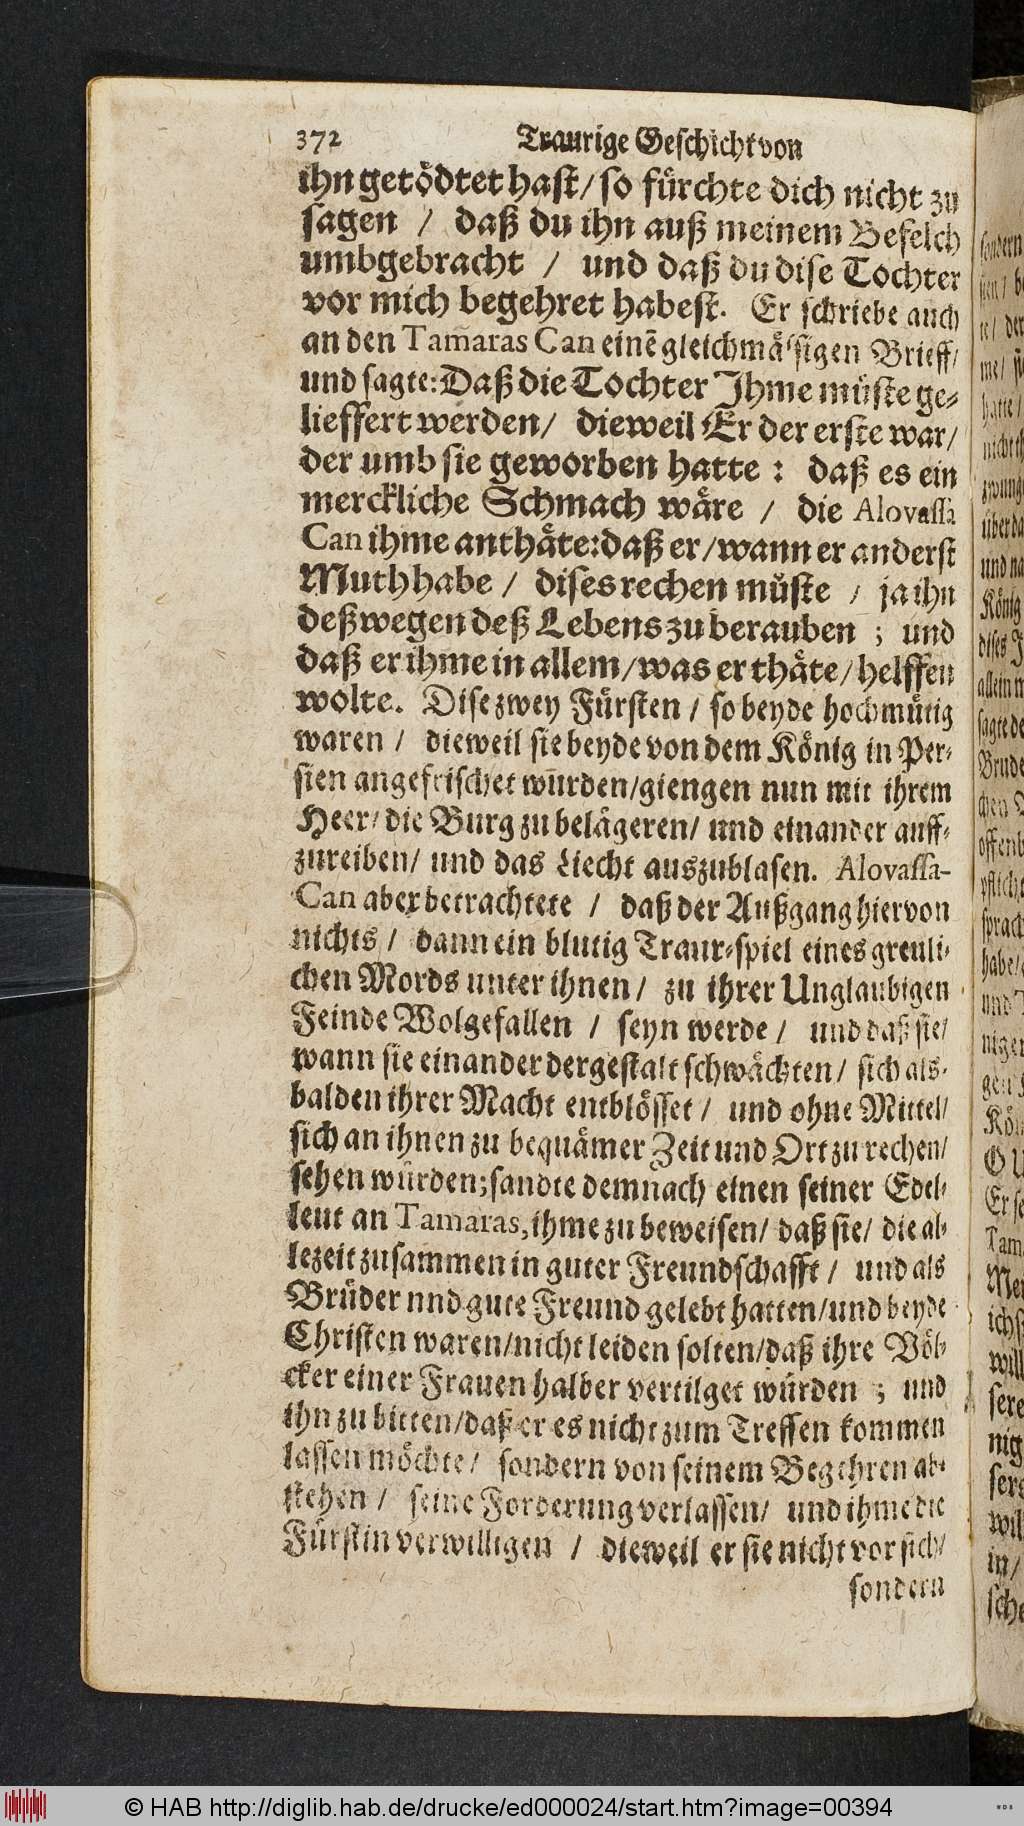 372 Traurige Geschicht von
ihn getödtet hast/ so fürchte dich nicht zu
sagen / daß du ihn auß meinem Befelch
umbgebracht / und daß du dise Tochter
vor mich begehret habest. Er schriebe auch
an den Tam̃aras Can einẽ gleichmäſsigen Brieff/
und sagte: Daß die Tochter Ihme müste ge-
lieffert werden/ dieweil Er der erste war/
der umb sie geworben hatte : daß es ein
merckliche Schmach wäre / die Alovassa
Can ihme anthäte: daß er/ wann er anderst
Muth habe / dises rechen müste / ja ihn
deßwegen deß Lebens zu berauben ; und
daß er ihme in allem/ was er thäte/ helffen
wolte. Dise zwey Fürsten / so beyde hochmütig
waren / dieweil sie beyde von dem König in Per-
sien angefrischet wurden/ giengen nun mit ihrem
Heer/ die Burg zu belägeren/ und einander auff-
zureiben/ und das Liecht auszublasen. Alovassa-
Can aber betrachtete / daß der Außgang hiervon
nichts / dann ein blutig Traur-spiel eines greuli-
chen Mords unter ihnen / zu ihrer Unglaubigen
Feinde Wolgefallen / seyn werde / und daß sie/
wann sie einander dergestalt schwächten/ sich als-
balden ihrer Macht entblösset / und ohne Mittel/
sich an ihnen zu bequämer Zeit und Ort zu rechen/
sehen würden; sandte demnach einen seiner Edel-
leut an Tamaras, ihme zu beweisen/ daß sie/ die al-
lezeit zusammen in guter Freundschafft / und als
Brüder nnd gute Freund gelebt hatten/ und beyde
Christen waren/ nicht leiden solten/ daß ihre Völ-
cker einer Frauen halber vertilget würden ; und
ihn zu bitten/ daß er es nicht zum Treffen kommen
lassen möchte/ sondern von seinem Begehren ab-
stehen / seine Forderung verlassen/ und ihme die
Fürstin verwilligen / dieweil er sie nicht vor sich/
sondern
© HAB http://diglib.hab.de/drucke/ed000024/start.htm?image=00394